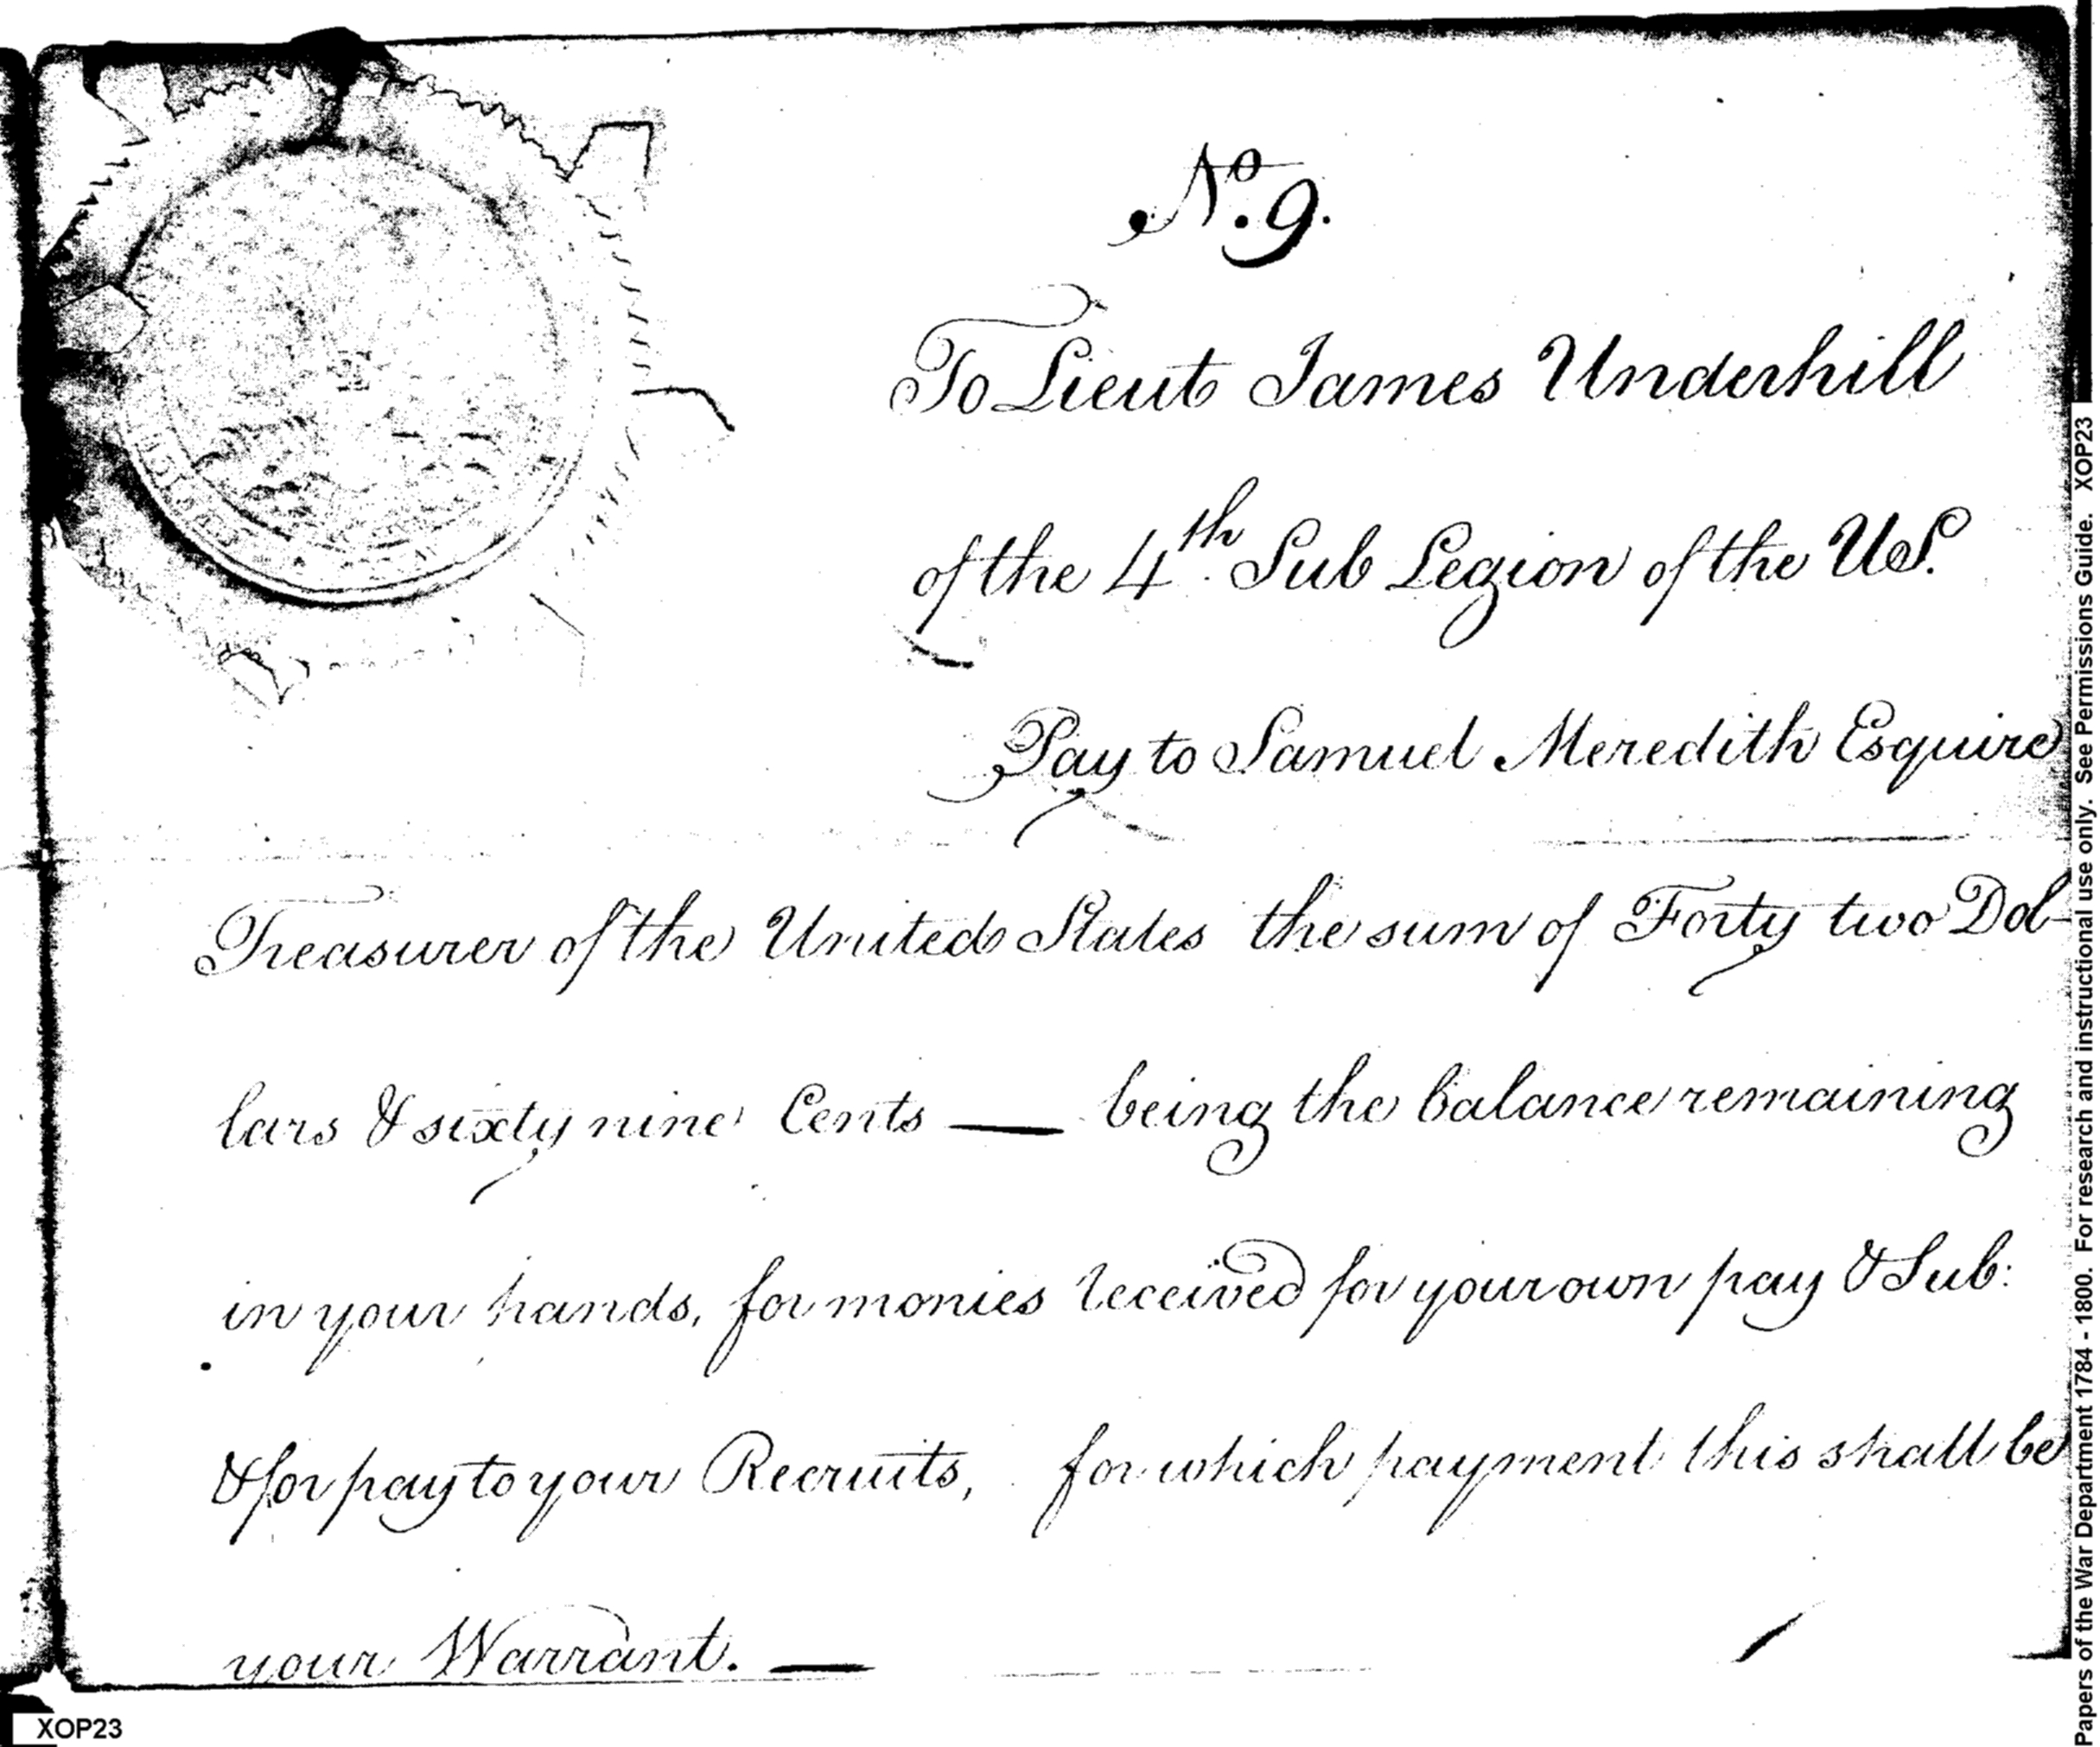 No. 9.
To Lieut James Underhill
of the 4th. Sub Legion of the US.
Pay to Samuel Meredith Esquire
Treasurer of the United States the sum of Forty two Dol-
lars & sixty nine Cents — being the balance remaining
in your hands, for monies received for your own pay & Sub:
& for pay to your Recruits, for which payment this shall be
your Warrant. —
XOP23
Papers of the War Department 1784 - 1800. For research and instructional use only. See Permissions Guide. XOP23